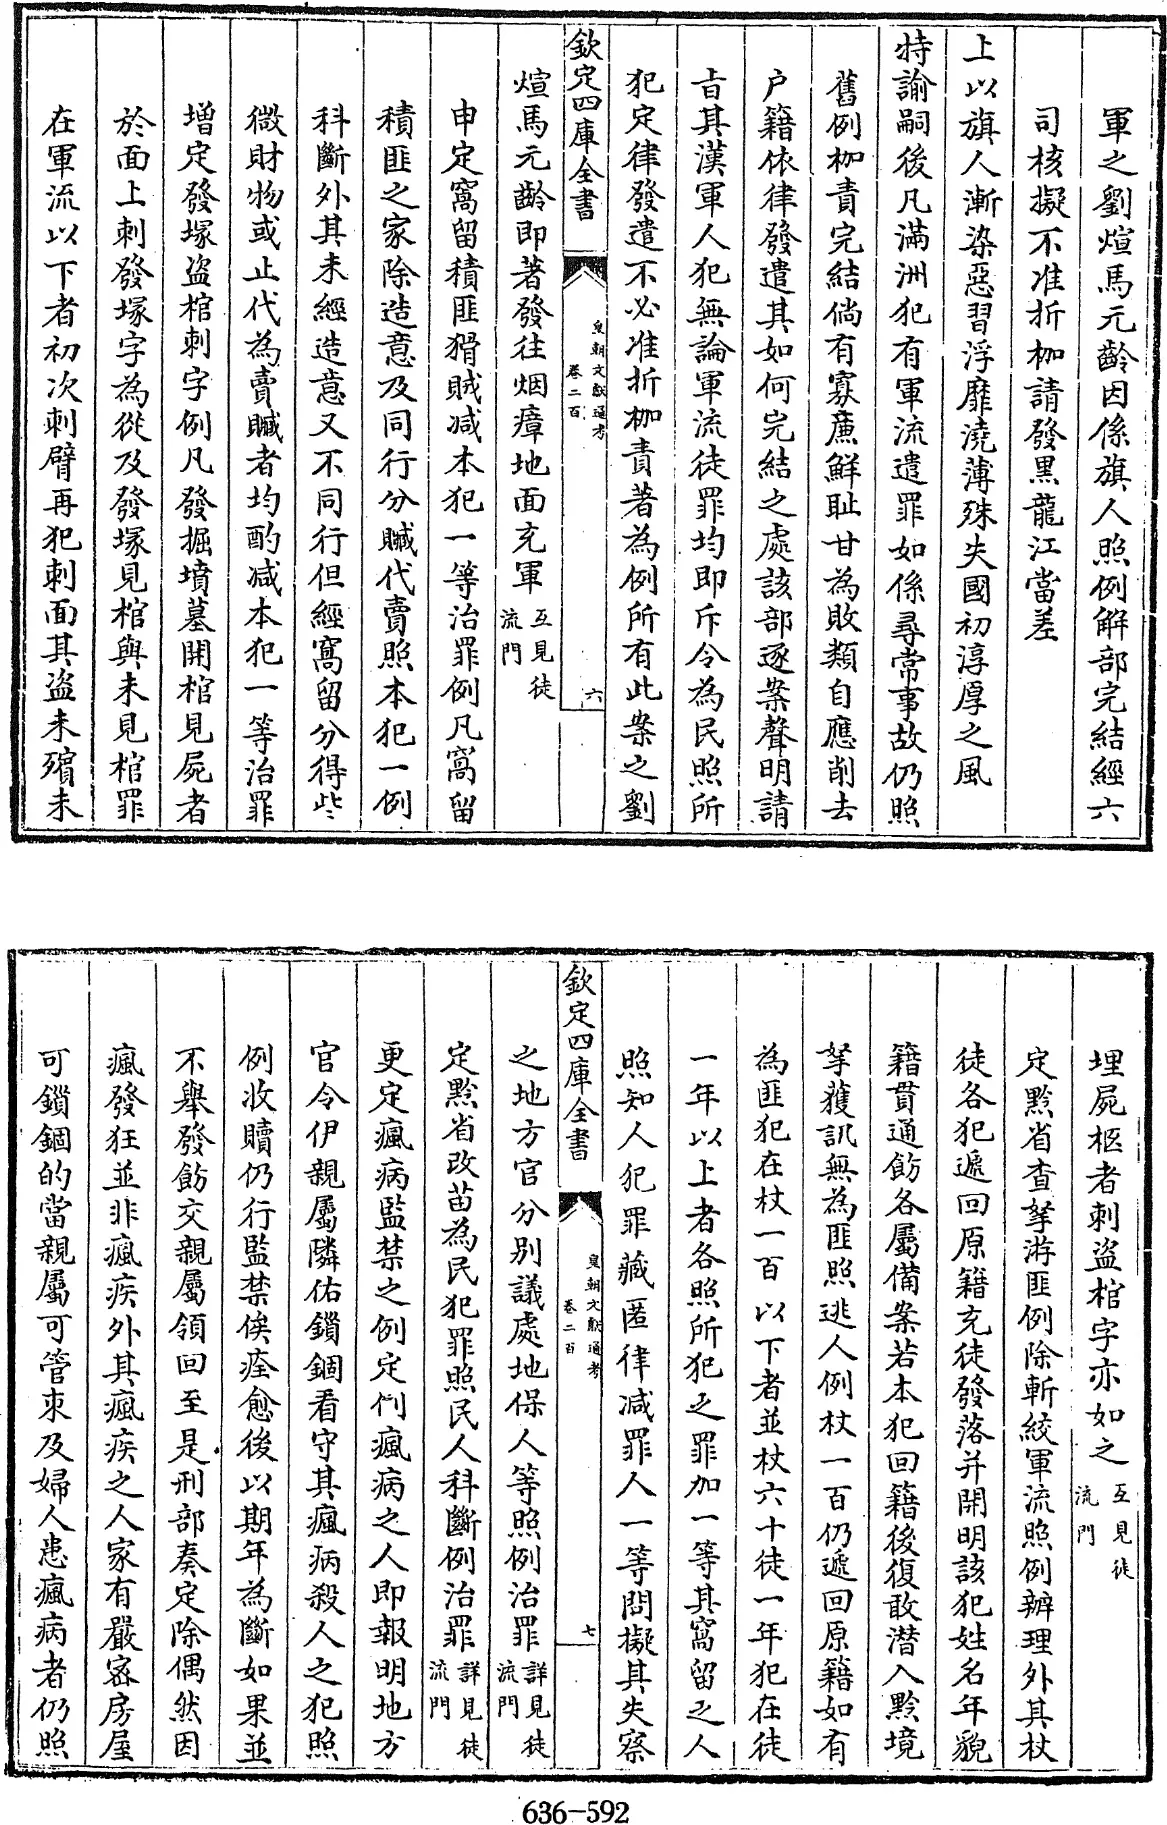 軍之劉煊馬元齡因係旗人照例解部完結經六
司核擬不准折枷請發黑龍江當差
上以旗人漸染惡習浮靡澆薄殊失國初淳厚之風
特諭嗣後凡滿洲犯有軍流遣罪如係尋常事故仍照
舊例枷責完結倘有寡廉鮮恥甘為敗類自應削去
户籍依律發遣其如何完結之處該部逐案聲明請
㫖其漢軍人犯無論軍流徒罪均即斥令為民照所
犯定律發遣不必准折枷責著為例所有此案之劉
欽定四庫全書
皇朝文獻通考
卷二百
六
煊馬元齡即著發往烟瘴地面充軍互見徒
流門
申定窩留積匪猾賊减本犯一等治罪例凡窩留
積匪之家除造意及同行分贓代賣照本犯一例
科斷外其未經造意又不同行但經窩留分得些
微財物或止代為賣贓者均酌减本犯一等治罪
增定發塚盗棺刺字例凡發掘墳墓開棺見屍者
於面上刺發塚字為從及發塚見棺與未見棺罪
在軍流以下者初次刺臂再犯刺面其盗未殯未
埋屍柩者刺盗棺字亦如之互見徒
流門
定黔省查拏游匪例除斬絞軍流照例辦理外其杖
徒各犯遞回原籍充徒發落并開明該犯姓名年貌
籍貫通飭各屬備案若本犯回籍後復敢潛入黔境
拏獲訊無為匪照逃人例杖一百仍遞回原籍如有
為匪犯在杖一百以下者並杖六十徒一年犯在徒
一年以上者各照所犯之罪加一等其窩留之人
照知人犯罪藏匿律减罪人一等問擬其失察
欽定四庫全書
皇朝文獻通考
卷二百
七
之地方官分别議處地保人等照例治罪詳見徒
流門
定黔省改苗為民犯罪照民人科斷例治罪詳見徒
流門
更定瘋病監禁之例定例瘋病之人即報明地方
官令伊親屬隣佑鎖錮看守其瘋病殺人之犯照
例收贖仍行監禁俟痊愈後以期年為斷如果並
不舉發飭交親屬領回至是刑部奏定除偶然因
瘋發狂並非瘋疾外其瘋疾之人家有嚴密房屋
可鎖錮的當親屬可管束及婦人患瘋病者仍照
636-592